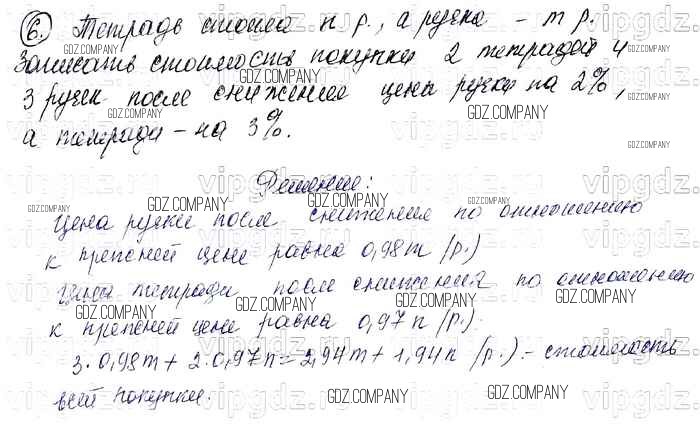 6. Тетрадь стоила n р., а ручка - m р.
Записать стоимость покупки 2 тетрадей и
3 ручек после снижения цены ручки на 2%,
а тетради - на 3%.
Решение:
Цена ручки после снижения по отношению
к прежней цене равна 0,98m (р.)
Цена тетради после снижения по отношению
к прежней цене равна 0,97n (р.).
3·0,98m + 2·0,97n = 2,94m + 1,94n (р.) - стоимость
всей покупки.